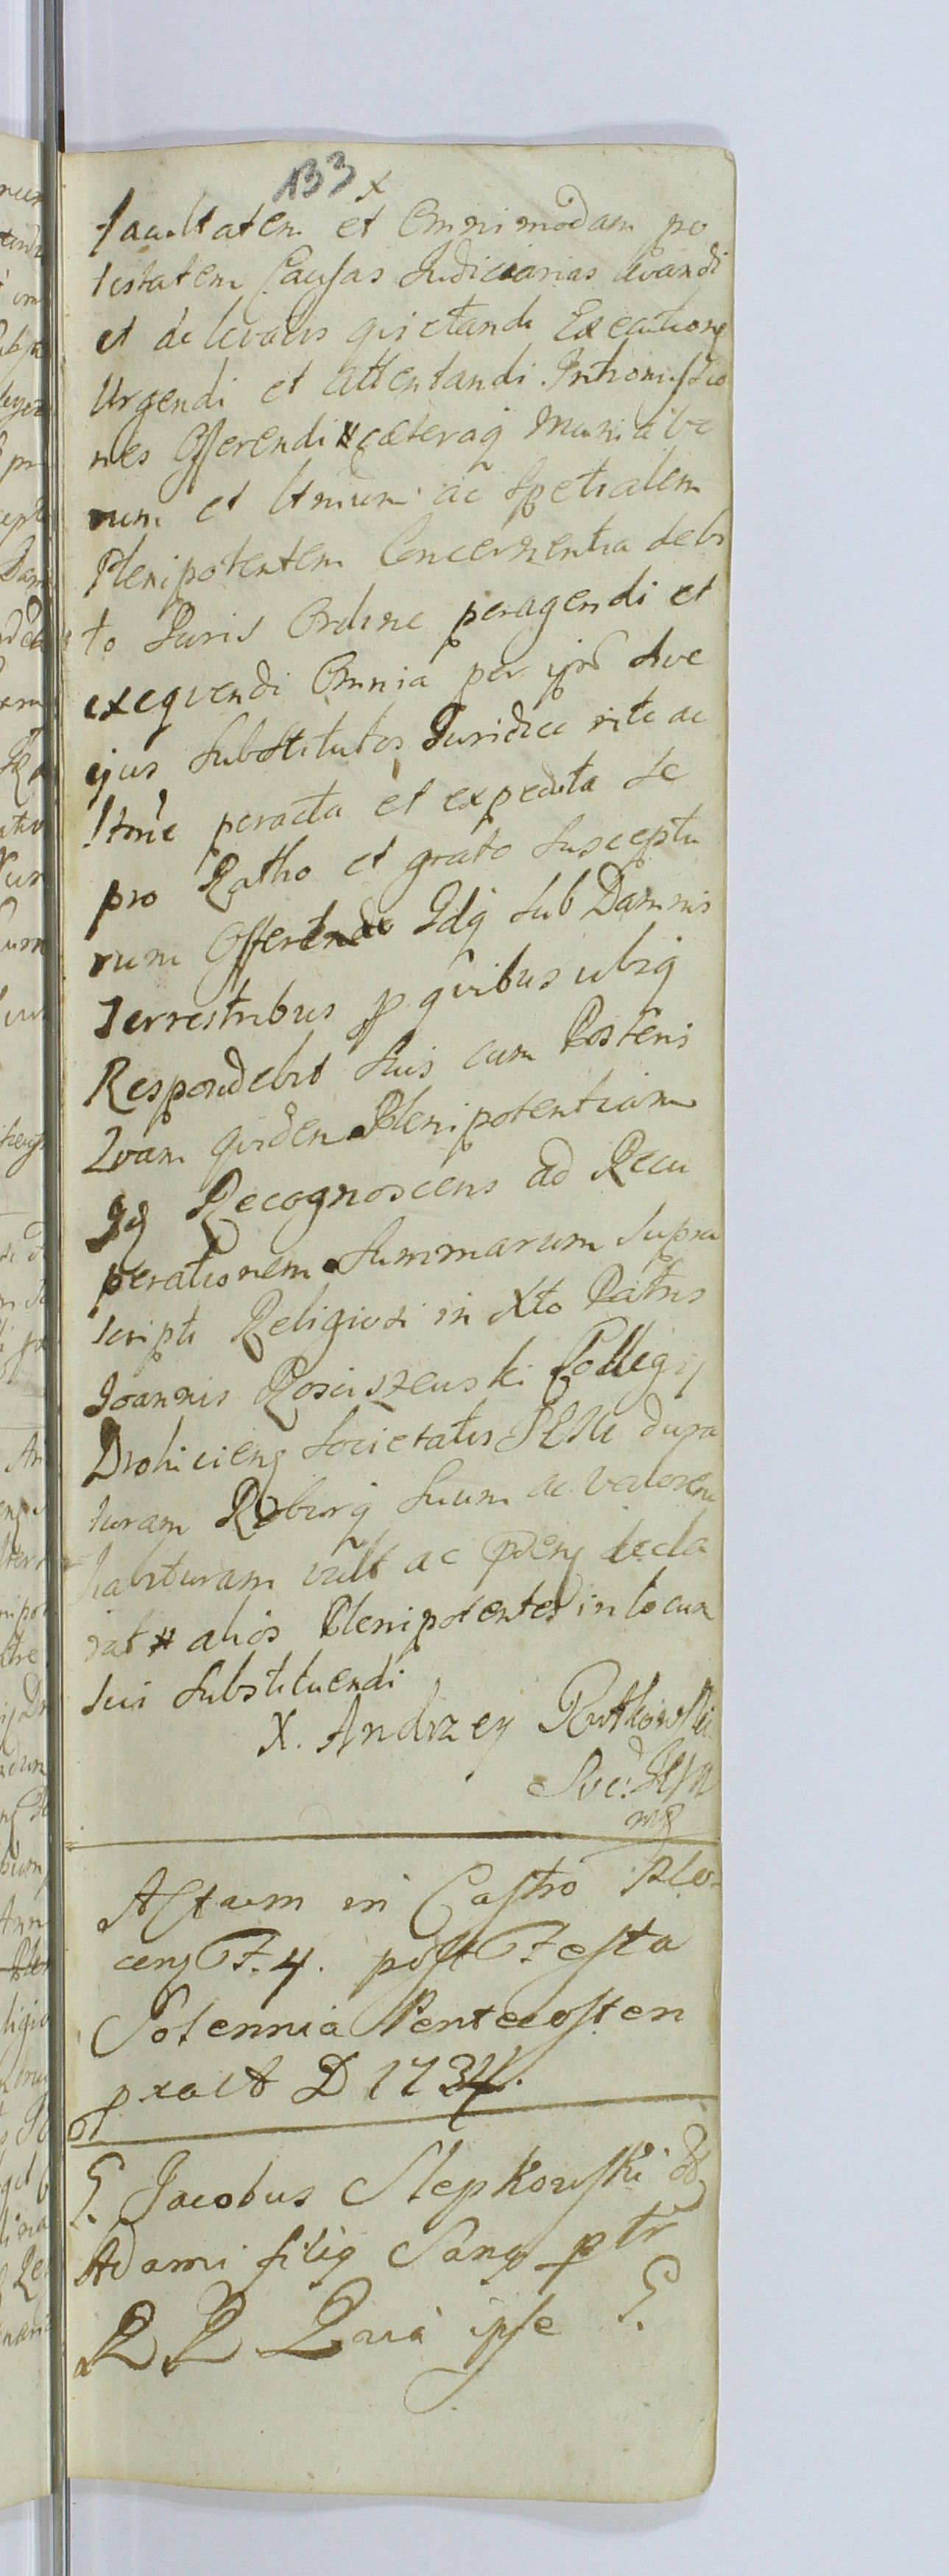 133 x
facultatem et Omnimodam po
testatem Causas Judiciarias levandi
et de levatis quietandi Executiones
Urgendi et attentandi. Intromissio
nes Offerendi # cæteraq Munia ve
rum et ltmum ac Spetialem
Plenipotentem Concernentia debi
to Juris Ordine peragendi et
exeqvendi Omnia per ipm sive
ejus Substitutos Juridice rite ac
ltme peracta et expedita se
pro Ratho et grato Susceptu
rum Offerendo Idq Sub Damnis
Terrestribus p qvibus ubiq
Respondebit Suis cum Posteris
Qvam qvidem Plenipotentiam
Idem Recognoscens ad Recu
perationem Summarum Supra
scripti Religiosi in Xto Patris
Joannis Rosciszewski Collegij
Drohiciens Societatis JESU dura
turam Roburq Suum ac valorem
habituram vult ac pdens decla
rat # alios Plenipotentes in locum
sui Substituendi
X. Andrzey Rutkowski
Soc: Jesu
mp
Actum in Castro Plo
cens F. 4. post Festa
Solennia Pentecosten
pxact D 1734.
G. Jacobus Slepkowski
Adami filiq Sanq ptr
R R Qvia ipse G.